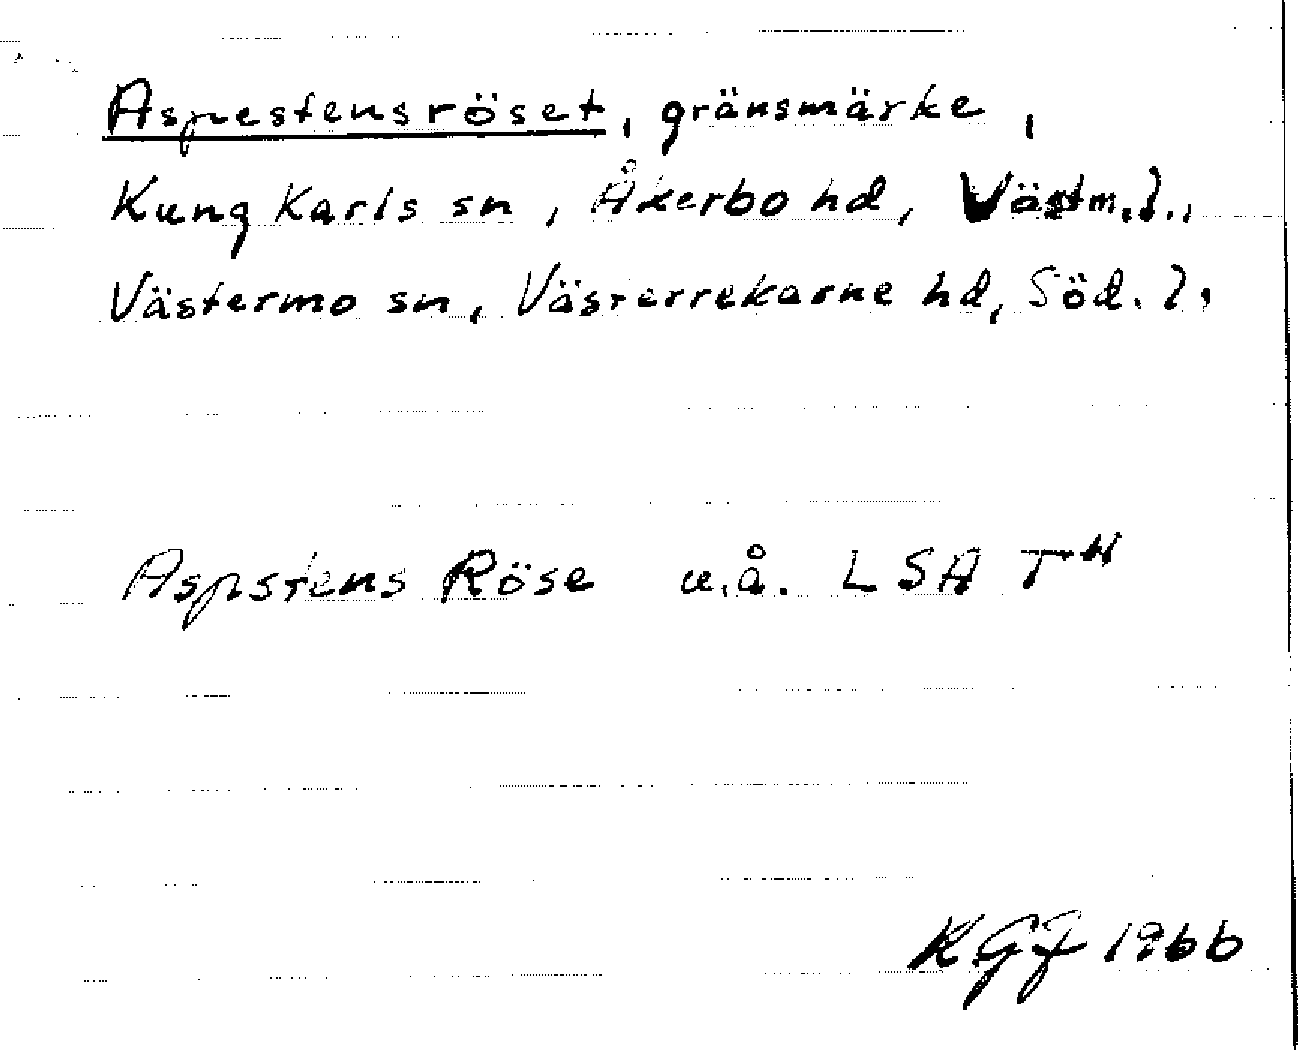 Aspestensröset, gränsmärke,
Kung Karls sn, Åkerbo hd, Västm. l.,
Västermo sn, Västerrekarne hd, Söd. l.
Aspstens Röse u.å. LSA T
KGJ 1966